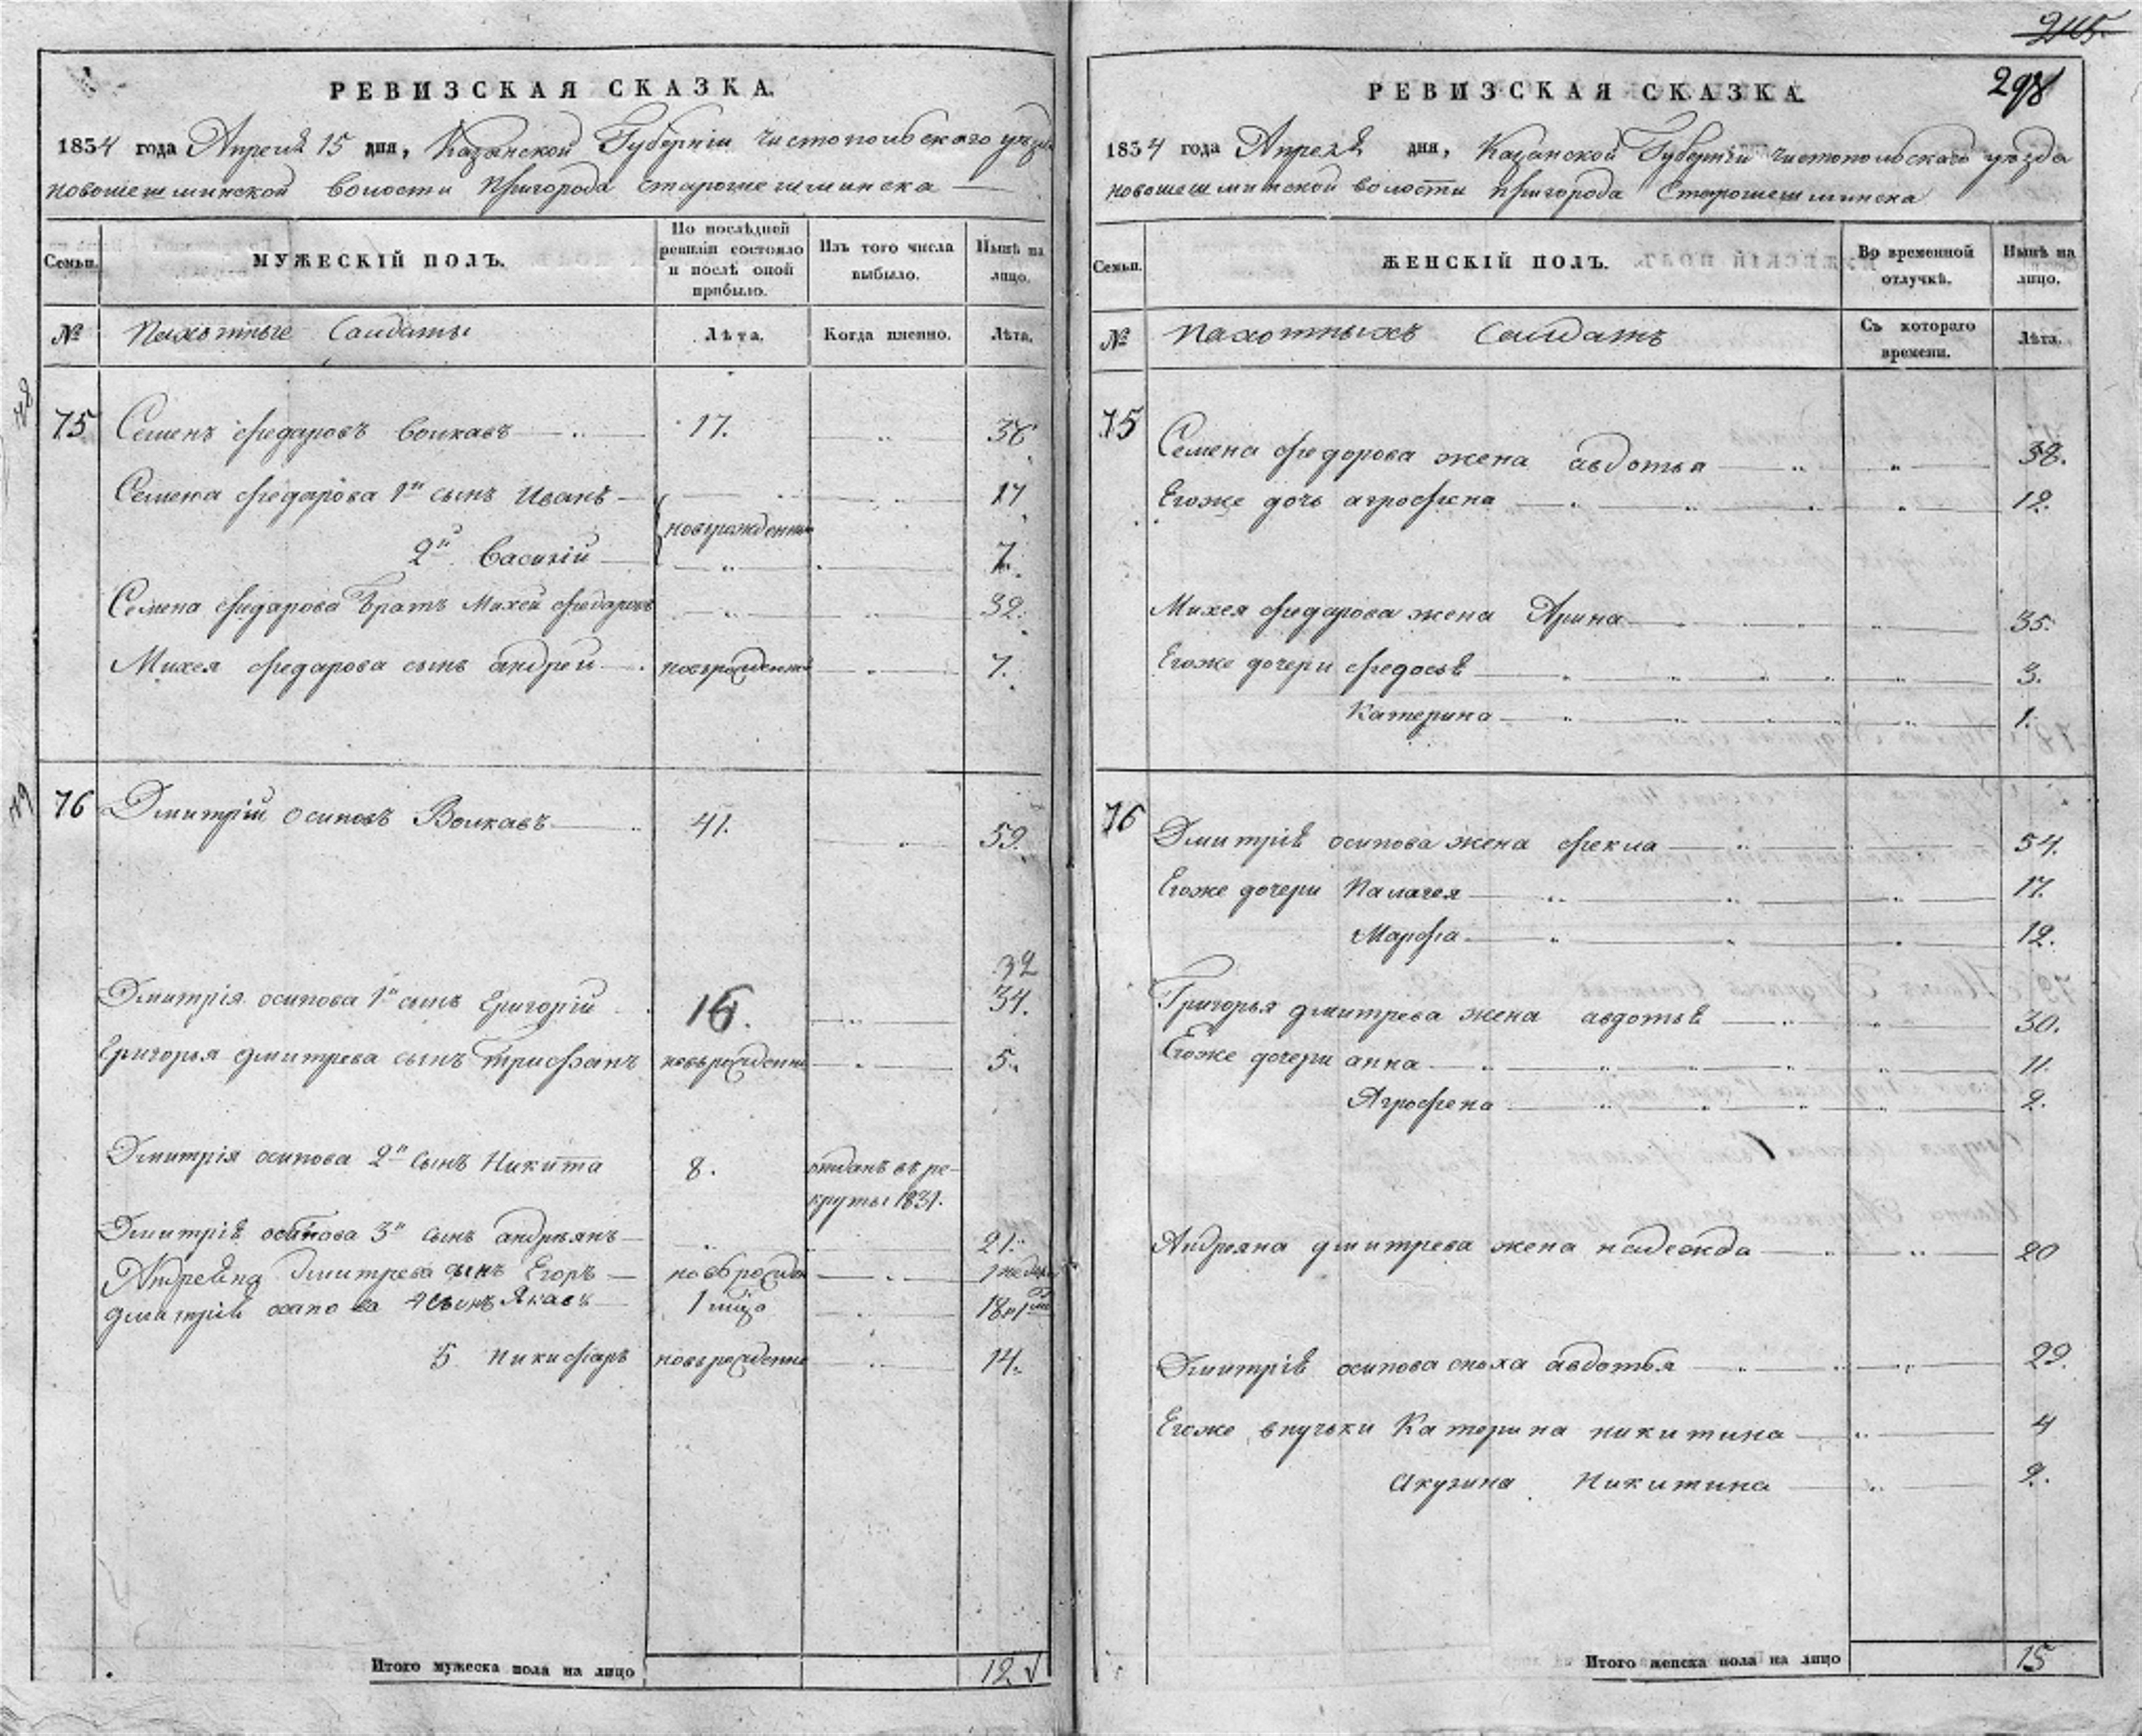 РЕВИЗСКАЯ СКАЗКА.
1834 года Апреля 15 дня, Казанской Губерніи Чистопольского уезда
новошешминской волости Пригорода старошешминска
Семьи. МУЖЕСКІЙ ПОЛЪ. По послѣдней ревизіи состояло и послѣ оной прибыло. Изъ того числа выбыло. Нынѣ на лицо.
№ Пахотные Солдаты Лѣта. Когда именно. Лѣта.
48
75 Семенъ федаровъ волкавъ 17. 36
Семена федарова 1й сынъ Иванъ 17
новорожденны
2й Василій 7.
Семена федарова братъ Михей федаровъ 32.
Михея федарова сынъ андрей новорожденны 7.
49
76 Дмитрій осиповъ Волкавъ 41. 59.
32
Дмитрія осипова 1й сынъ Григорій 16. 34.
Григорья дмитрева сынъ Трифанъ новорожденны 5.
Дмитрія осипова 2й сынъ Никита 8. отданъ въ ре-
круты 1831.
Дмитріѣ осипова 3й сынъ андреянъ 21.
Андреяна дмитрева сынъ Егоръ новорожден
дмитріѣ осипова 4 сынъ Якавъ 1 18
5 Никифаръ новорожденны 14.
Итого мужеска пола на лицо 12
245
298
РЕВИЗСКАЯ СКАЗКА.
1834 года Апрелѣ дня, Казанской Губерніи чистопольскаго уезда
новошешминской волости пригорода Старошешминска
Семьи. ЖЕНСКІЙ ПОЛЪ. Во временной отлучкѣ. Нынѣ на лицо.
№ Пахотныхъ Солдатъ Съ котораго времени. Лѣта.
75
Семена федорова жена авдотья 38.
Егоже дочь агрофена 12.
Михея федарова жена Арина 35.
Егоже дочери федосьѣ 3.
Катерина 1.
76
Дмитріѣ осипова жена фекла 54.
Егоже дочери Палагея 17.
Марфа 12.
Григорья дмитрева жена авдотьѣ 30.
Егоже дочери анна 11.
Агрофена 2.
Андреяна дмитрева жена надежда 20
Дмитріѣ осипова сноха авдотья 29.
Егоже внучьки Катерина никитина 4
Акулина Никитина 2.
Итого женска пола на лицо 15